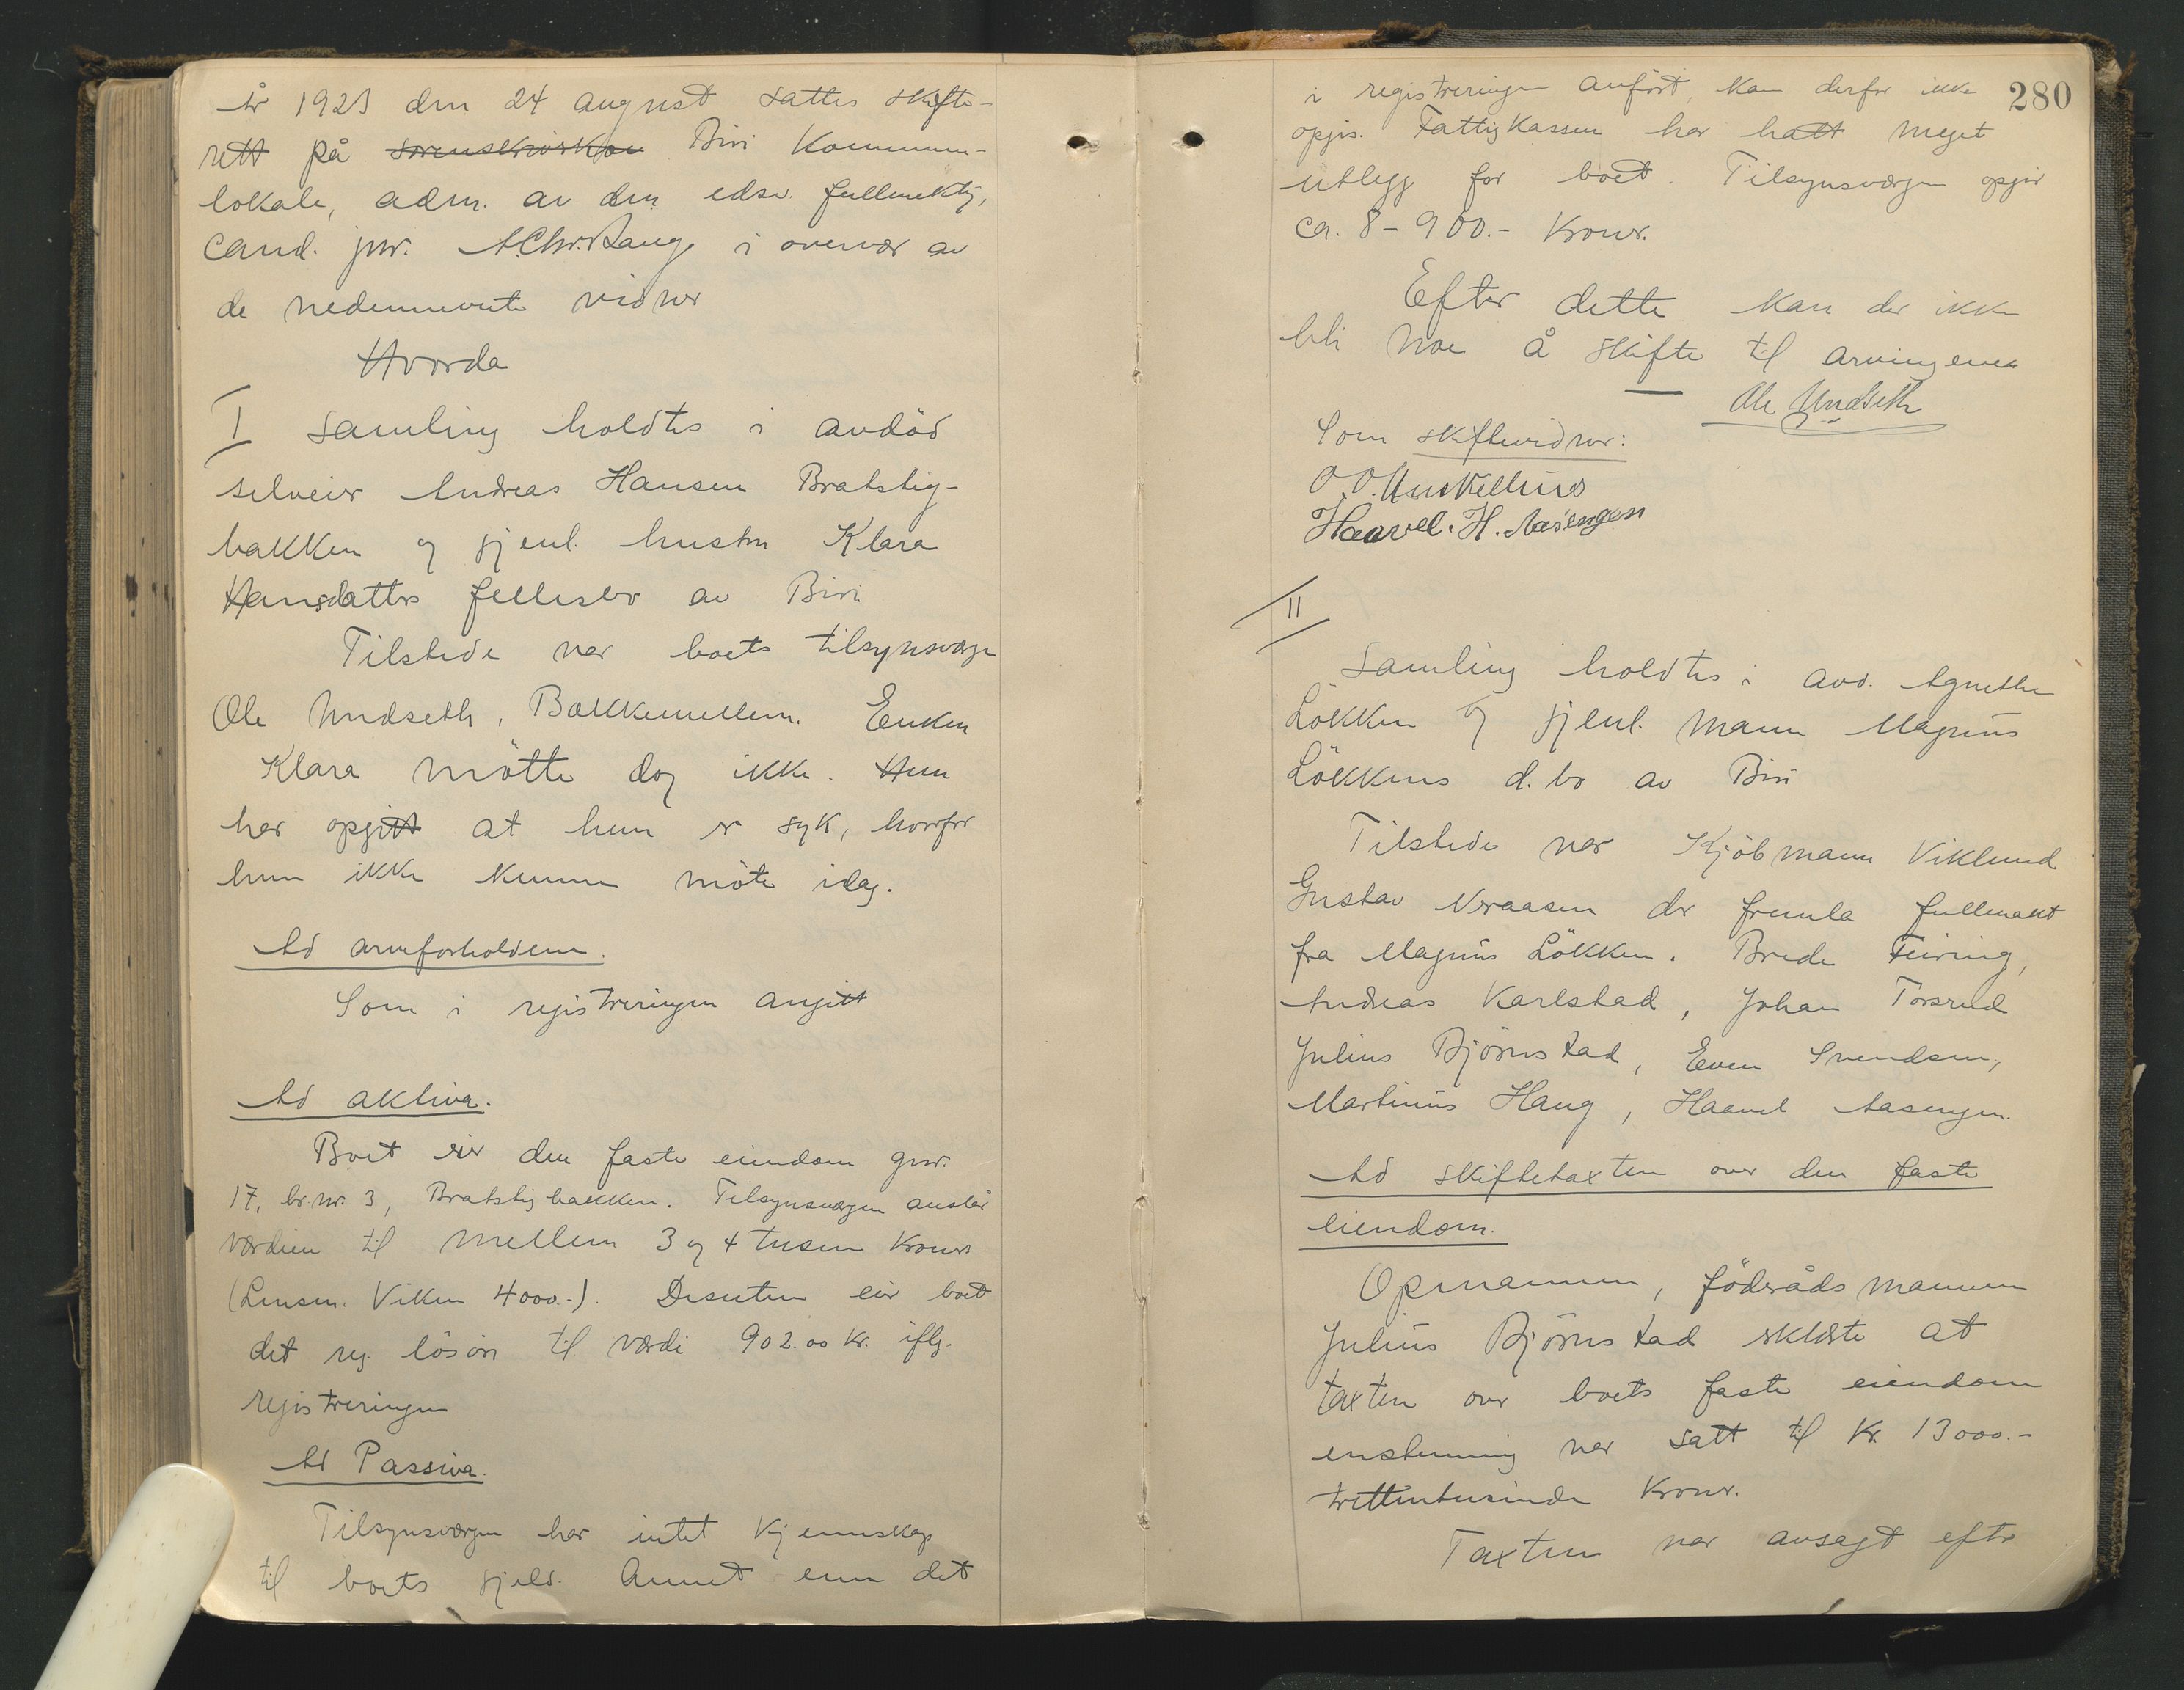 År 1923 den 24 august sattes skifte-
rett på sorenskriverktor Biri Kommune-
lokale, adm. av den edsv. fullmektig,
cand. jur. A. Chr. Bauge i overvær av
de nedennevnte vidner
Hvorda
I Samling holdtes i avdöd
selveier Andreas Hansen Bratstig-
bakken og gjenl. hustru Klara
Hansdatters fellesbo av Biri
Tilstede var boets tilsynsværge
Ole Undseth, Bækkemellem. Enken
Klara mötte dog ikke. Hun
har opgitt at hun er syk, hvorfor
hun ikke kunne möte idag.
Ad arveforholdene.
Som i registreringen angitt
Ad aktiva.
Boet eier den faste eiendom gnr.
17, br.nr. 3, Bratstigbakken. Tilsynsværgen anslår
værdien til mellem 3 og 4 tusen kroner
(Lensm. Viken 4000.-). Desuten eier boet
det reg. lösöre til værdi 902.00 kr. iflg.
registreringen
Ad Passiva.
Tilsynsværgen har intet kjennskap
til boets gjeld. Annet enn det
280
i registreringen anfört, kan derfor ikke
opgis. Fattigkassen har hatt meget
utlegg for boet. Tilsynsværgen opgir
ca. 8-900.- kroner.
Efter dette kan der ikke
bli noe å skifte til arvingene
Ole Undseth
Som skiftevidner:
O. O. Huskelhus
Haavel. H. Aasengen
II
Samling holdtes i avd. Agnethe
Lökken og gjenl. mann Magnus
Lökkens d.bo av Biri
Tilstede var Kjöbmann Viklund
Gustav Neraasen der fremla fullmakt
fra Magnus Lökken. Brede Feiring,
Andreas Karlstad, Johan Torsrud
Julius Björnstad, Even Svendsen,
Martinus Haug, Haavel Aasengen.
Ad skiftetaxten over den faste
eiendom.
Opmannen, föderådsmannen
Julius Björnstad erklærte at
taxten over boets faste eiendom
enstemmig var satt til kr. 13000.-
trettentusinde kroner.
Taxten var avsagt efter